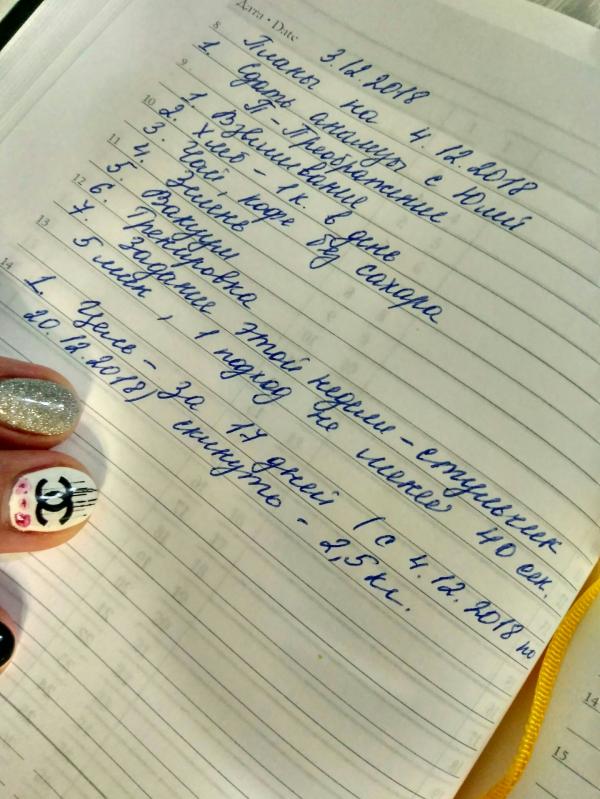 Дата • Date
3.12.2018
8
Планы на 4.12.2018
1 Сдать анализы с Юлей
9
П-Преображение
1 Взвешивание
10
2. Хлеб - 1к. в день
3. Чай, кофе без сахара
11
4. Зелень
5 Вакуум
12
6. Тренировка
7. Задание этой недели - стульчик
13
5 мин, 1 подход не менее 40 сек.
14
1. Цель - за 17 дней (с 4.12.2018 по
20.12.2018) скинуть - 2,5 кг.
14
15